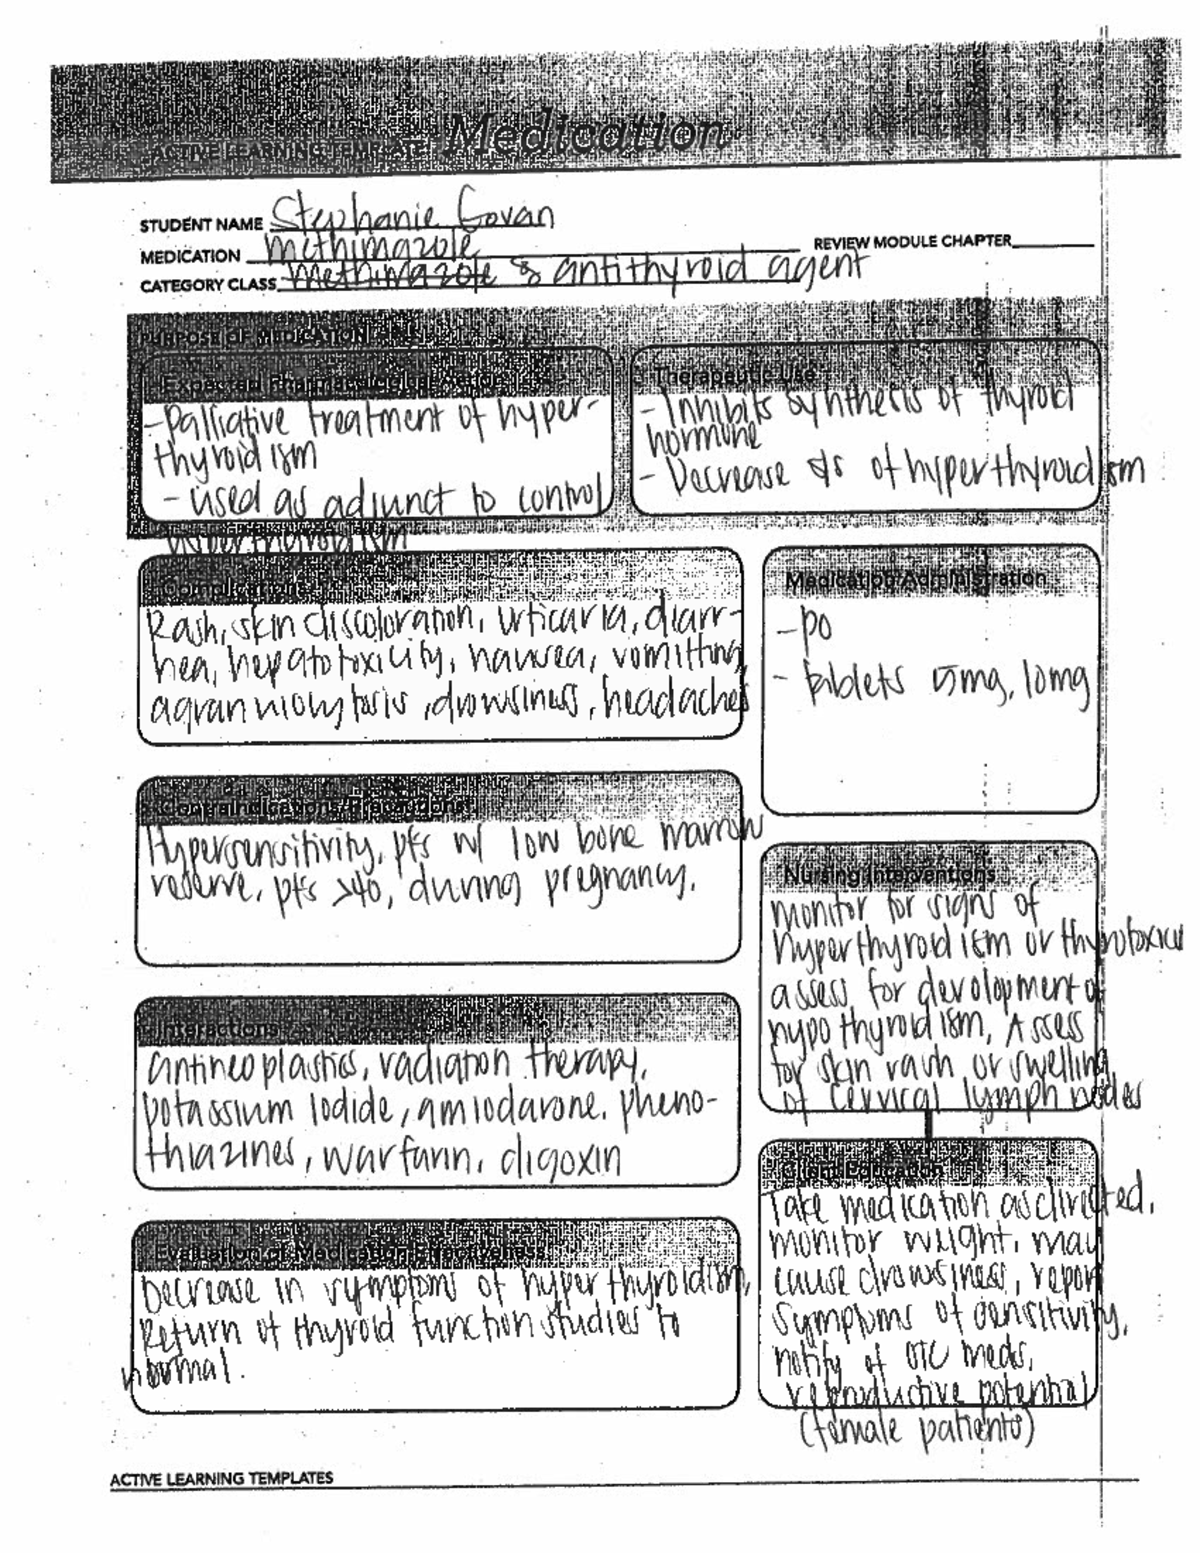 ACTIVE LEARNING TEMPLATE: Medication
STUDENT NAME Stephanie Govan
MEDICATION Methimazole REVIEW MODULE CHAPTER
CATEGORY CLASS Methimazole antithyroid agent
PURPOSE OF MEDICATION
Expected Pharmacological Action
- Palliative treatment of hyper-
thyroidism
- used as adjunct to control
hyperthyroidism
Therapeutic Use
- Inhibits synthesis of thyroid
hormone
- Decrease s/s of hyperthyroidism
Complications
Rash, skin discoloration, urticaria, diarr-
hea, hepatotoxicity, nausea, vomitting
agranulolytosis, drowsiness, headaches
Medication Administration
- po
- tablets 5mg, 10mg
Contraindications/Precautions
Hypersensitivity, pts w/ low bone marrow
reserve, pts >40, during pregnancy.
Nursing Interventions
monitor for signs of
hyperthyroidism or thyrotoxicosis
assess for development of
hypothyroidism, Assess
for skin rash or swelling
of cervical lymph nodes
Interactions
antineoplastics, radiation therapy,
potassium iodide, amiodarone, pheno-
thiazines, warfarin, digoxin
Client Education
Take medication as directed,
monitor weight, may
cause drowsiness, report
symptoms of sensitivity,
notify of OTC meds,
reproductive potential
(female patients)
Evaluation of Medication Effectiveness
Decrease in symptoms of hyperthyroidism,
Return of thyroid function studies to
normal.
ACTIVE LEARNING TEMPLATES